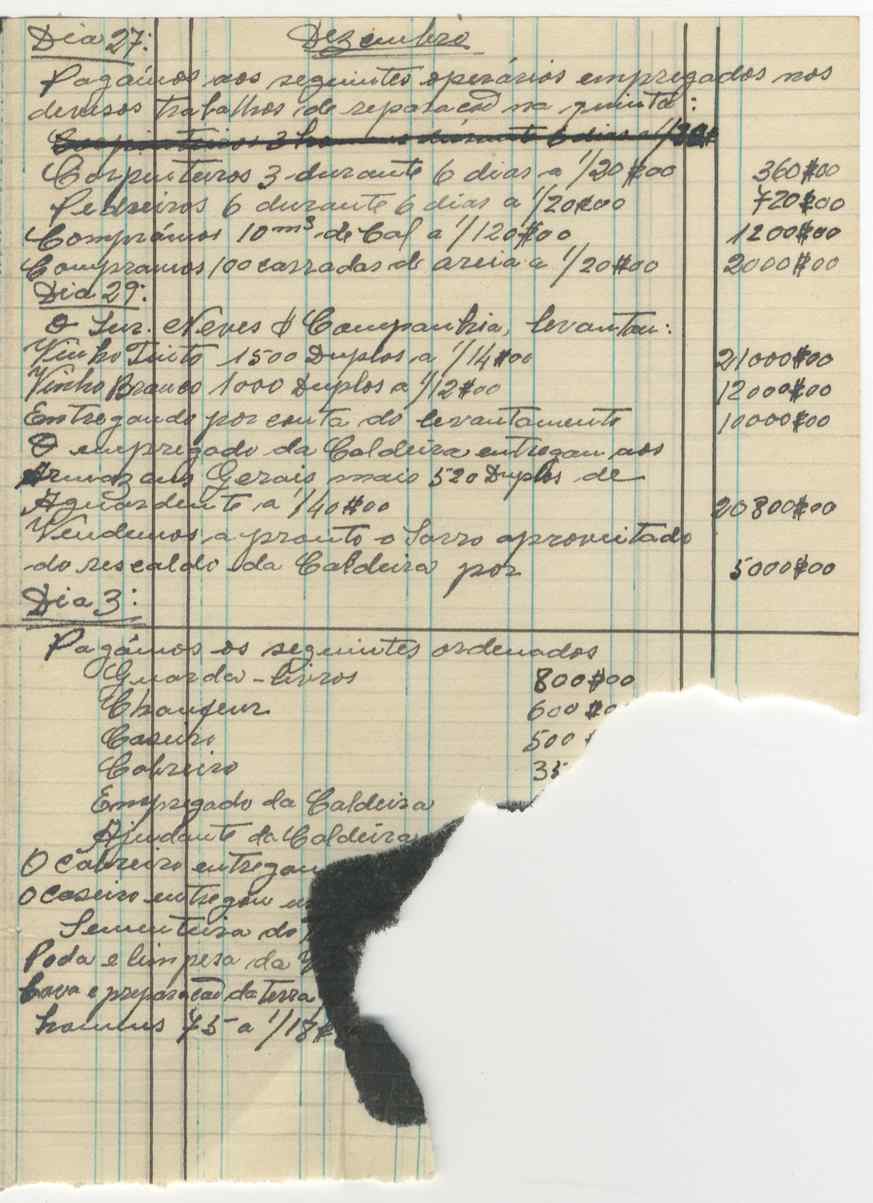 Dia 27: Dezembro
Pagámos aos seguintes operários empregados nos
diversos trabalhos de reparação na quinta:
Carpinteiros 3 homens durante 6 dias a 1/20$
Carpinteiros 3 durante 6 dias a 1/20$00 360$00
Pedreiros 6 durante 6 dias a 1/20$00 720$00
Comprámos 10m³ de Cal a 1/120$00 1200$00
Compramos 100 carradas de areia a 1/20$00 2000$00
Dia 29:
O Snr. Neves & Companhia, levantou:
Vinho Tinto 1500 Duplos a 1/14$00 21000$00
Vinho Branco 1000 Duplos a 1/12$00 12000$00
Entregando por conta do levantamento 10000$00
O empregado da Caldeira entregou aos
Armazens Gerais mais 520 Duplos de
Aguardente a 1/40$00 20800$00
Vendemos a pronto o Sarro aproveitado
do rescaldo da Caldeira por 5000$00
Dia 3:
Pagámos os seguintes ordenados
Guarda-livros 800$00
Chaufeur 600$0
Caseiro 500$
Cabreiro 35
Empregado da Caldeira
Ajudante da Caldeira
O Cabreiro entregou
O Caseiro entregou
Sementeira do
Poda e limpesa da
Cava e preparação da terra
homens 75 a 1/18$